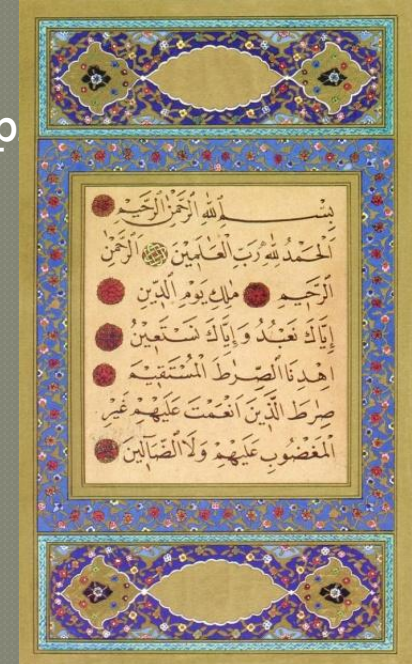 بِسْمِ اللهِ الرَّحْمٰنِ الرَّحِيمِ
الْحَمْدُ لِلّٰهِ رَبِّ الْعَالَمِينَ الرَّحْمٰنِ
الرَّحِيمِ مٰلِكِ يَوْمِ الدِّينِ
إِيَّاكَ نَعْبُدُ وَإِيَّاكَ نَسْتَعِينُ
اِهْدِنَا الصِّرٰطَ الْمُسْتَقِيمَ
صِرٰطَ الَّذِينَ اَنْعَمْتَ عَلَيْهِمْ غَيْرِ
الْمَغْضُوبِ عَلَيْهِمْ وَلَا الضَّٓالِّينَ